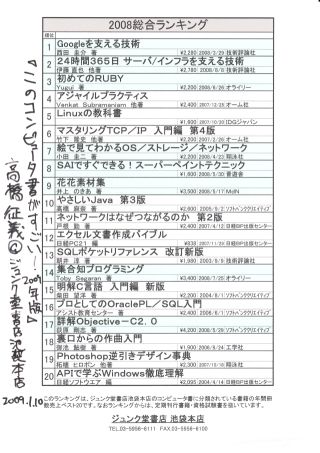 2008総合ランキング
順位
1 Googleを支える技術
西田 圭介 著 ¥2,280 2008/2/29 技術評論社
2 24時間365日 サーバ/インフラを支える技術
伊藤 直也 他著 ¥2,780 2008/8/8 技術評論社
3 初めてのRUBY
Yugui 著 ¥2,200 2008/6/26 オライリー
4 アジャイルプラクティス
Venkat Subramaniam 他著 ¥2,400 2007/12/25 オーム社
5 Linuxの教科書
¥1,600 2007/10/30 IDGジャパン
6 マスタリングTCP/IP 入門編 第4版
竹下 隆史 他著 ¥2,200 2007/2/26 オーム社
7 絵で見てわかるOS/ストレージ/ネットワーク
小田 圭二 著 2008/4/23 翔泳社
8 SAIですぐできる!スーパーペイントテクニック
¥1,600 2008/3/30 晋遊舎
9 花花素材集
井上 のきあ 著 ¥3,500 2008/3/17 MdN
10 やさしいJava 第3版
高橋 麻奈 著 ¥2,600 2005/9/2 ソフトバンククリエイティブ
11 ネットワークはなぜつながるのか 第2版
戸根 勤 著 ¥2,400 2007/4/12 日経BP出版センター
12 エクセル文書作成バイブル
日経PC21 編 ¥838 2007/11/23 日経BP出版センター
13 SQLポケットリファレンス 改訂新版
朝井 淳 著 ¥1,980 2003/9/9 技術評論社
14 集合知プログラミング
Toby Segaran 著 ¥3,400 2008/7/25 オライリー
15 明解C言語 入門編 新版
柴田 望洋 著 ¥2,200 2004/8/1 ソフトバンククリエイティブ
16 プロとしてのOraclePL/SQL入門
アシスト教育センター 著 ソフトバンククリエイティブ
17 詳解Objective-C2.0
荻原 剛志 著 ¥4,200 2008/5/29 ソフトバンククリエイティブ
18 裏口からの作曲入門
御池 鮎樹 著 ¥1,900 2006/8/24 工学社
19 Photoshop逆引きデザイン事典
上原ゼンジ 他著 ¥2,300 2007/10/16 翔泳社
20 APIで学ぶWindows徹底理解
日経ソフトウエア 編 ¥2,095 2004/4/14 日経BP出版センター
このランキングは、ジュンク堂書店池袋本店のコンピュータ書に分類されている書籍の年間冊
数売上ベスト20です。なおランキングからは、定期刊行書籍・資格試験書を抜いています。
ジュンク堂書店 池袋本店
TEL.03-5956-6111 FAX.03-5956-6100
『このコンピュータ書がすごい! 2009年版』
高橋征義@ジュンク堂書店池袋本店
2009.1.10